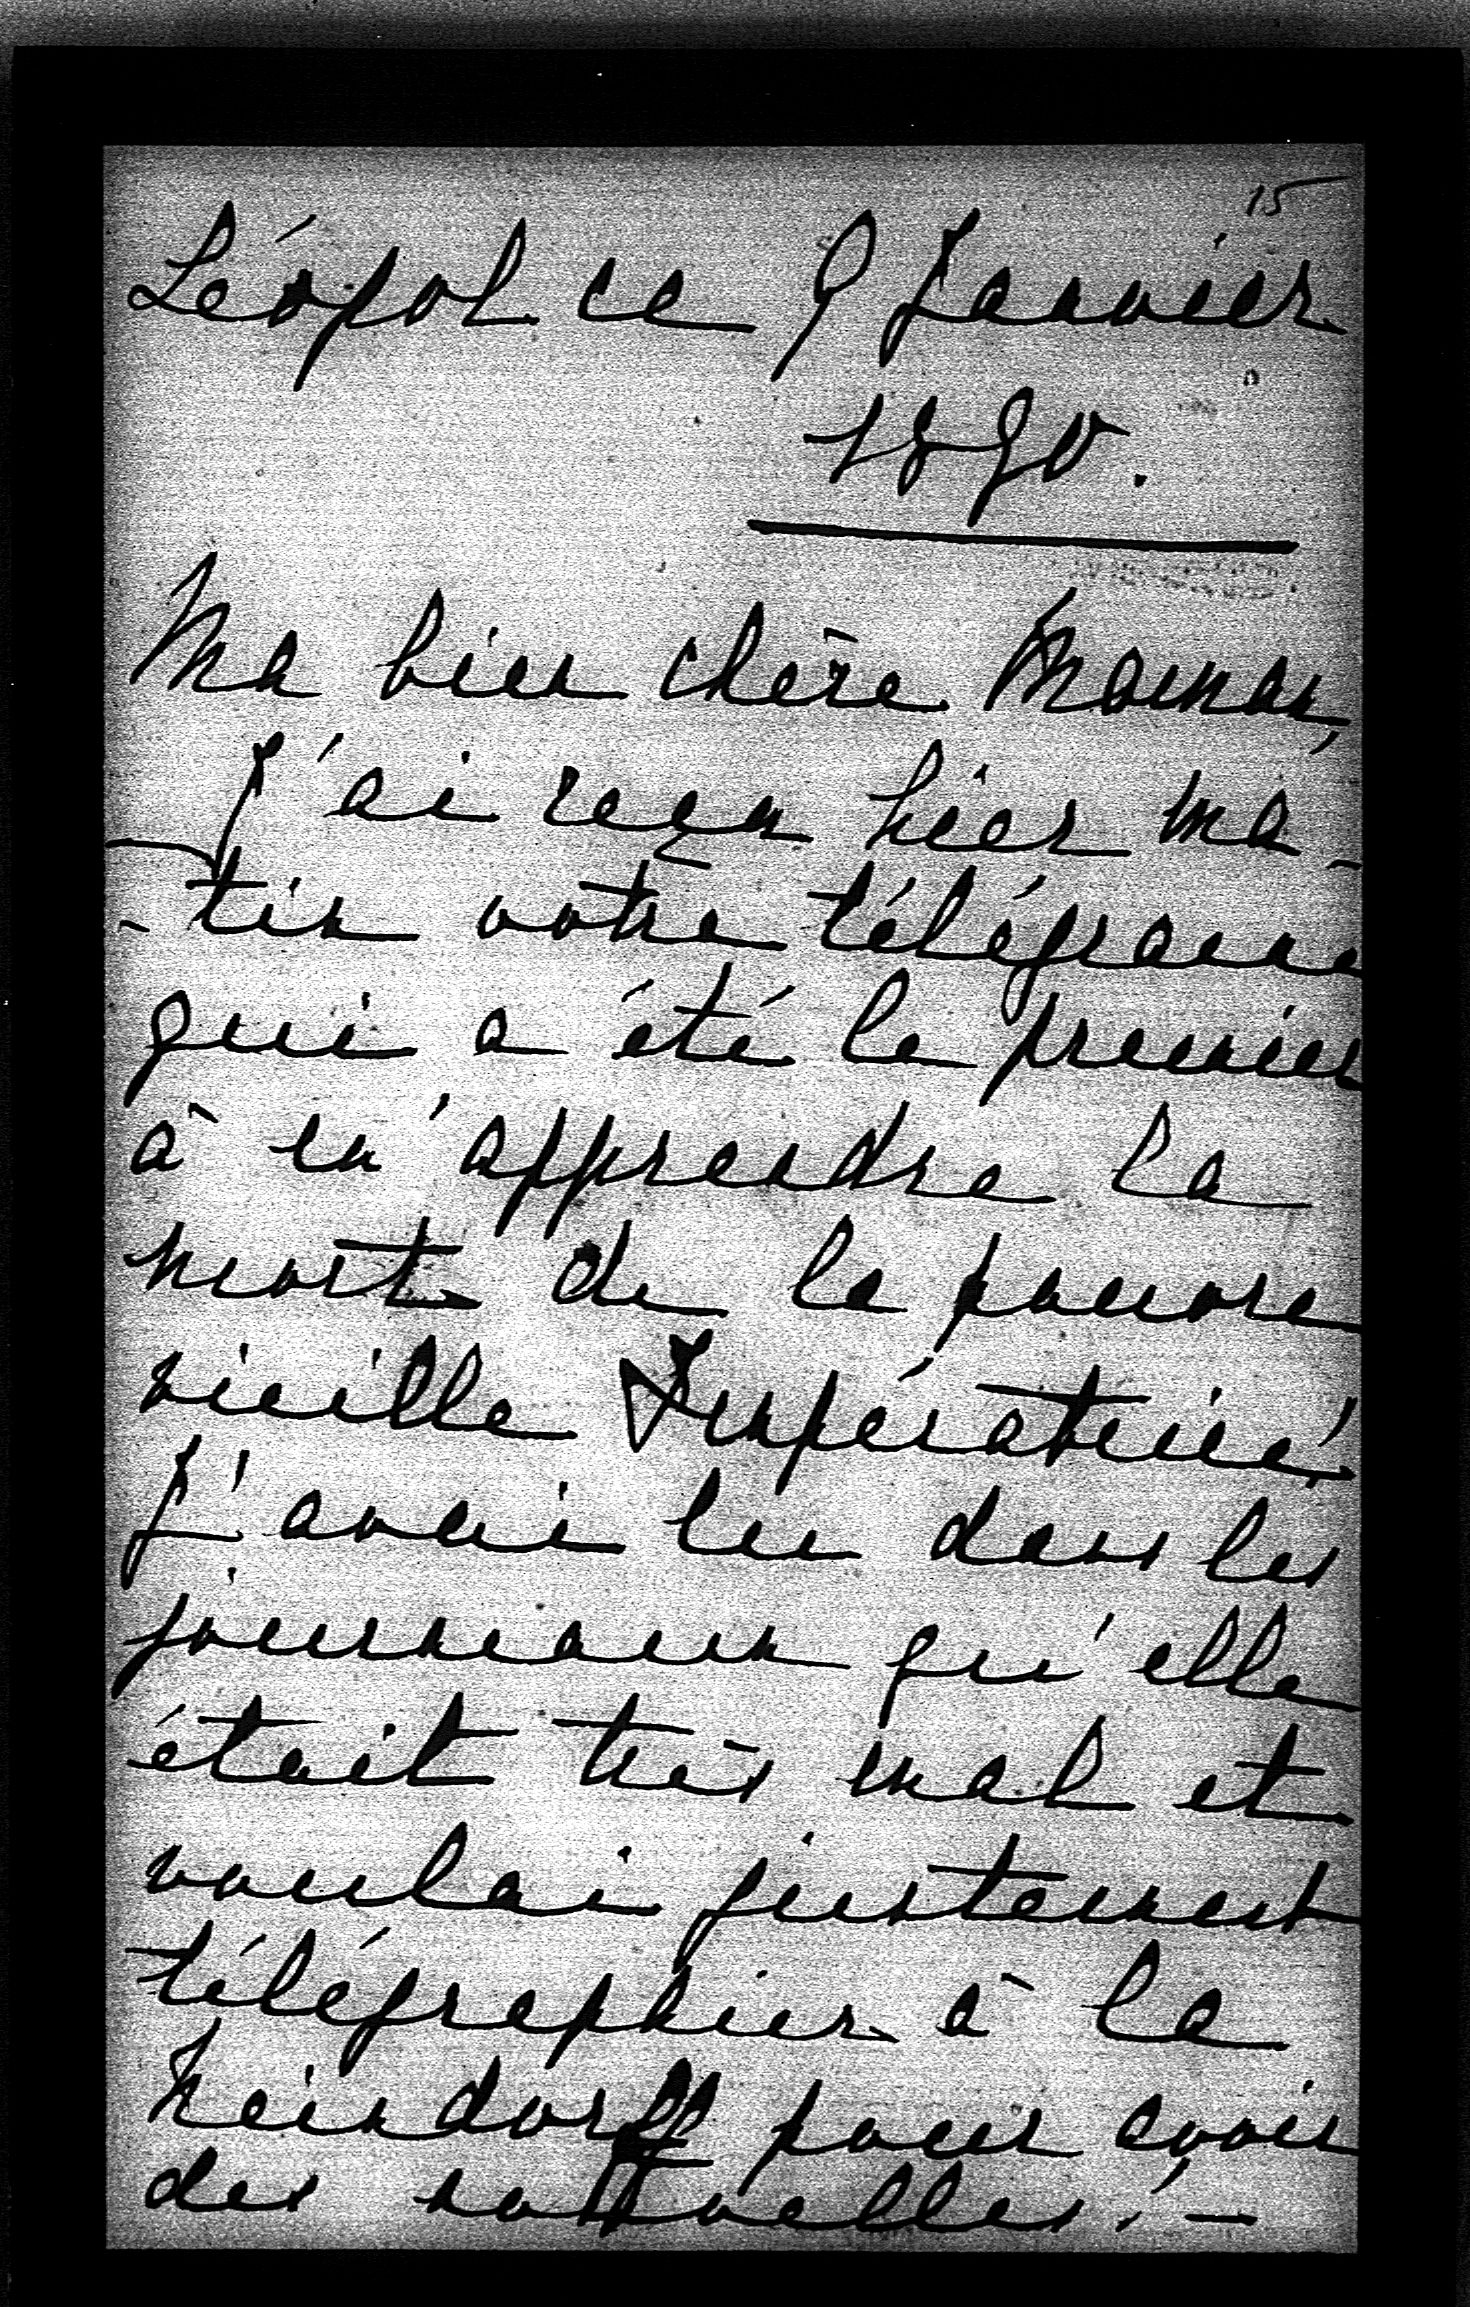 15
Léopol ce 9 Janvier
1890.
Ma bien chère Maman,
J'ai reçu hier ma-
-tin votre télégramme
qui a été le premier
à m'apprendre la
mort de la pauvre
vieille Impératrice!
J'avai lu dans les
journeaux qu'elle
était très mal et
voulai justement
télégraphier à la
Neindorff pour avoir
des nouvelles! –